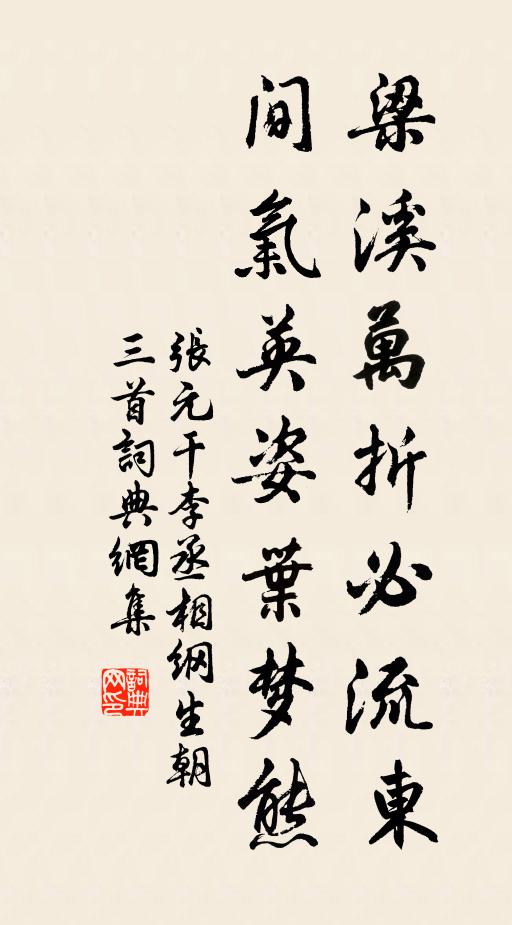 梁溪萬折必流東
間氣英姿葉梦熊
張元干李丞相纲生朝
三首詞典網集
詞典网印